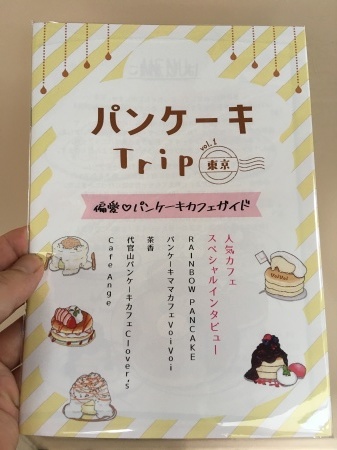 パンケーキ
Trip
vol.1
東京
偏愛♡パンケーキカフェガイド
人気カフェ
スペシャルインタビュー
RAINBOW PANCAKE
パンケーキママカフェVoiVoi
茶香
代官山パンケーキカフェClover's
Cafe Ange